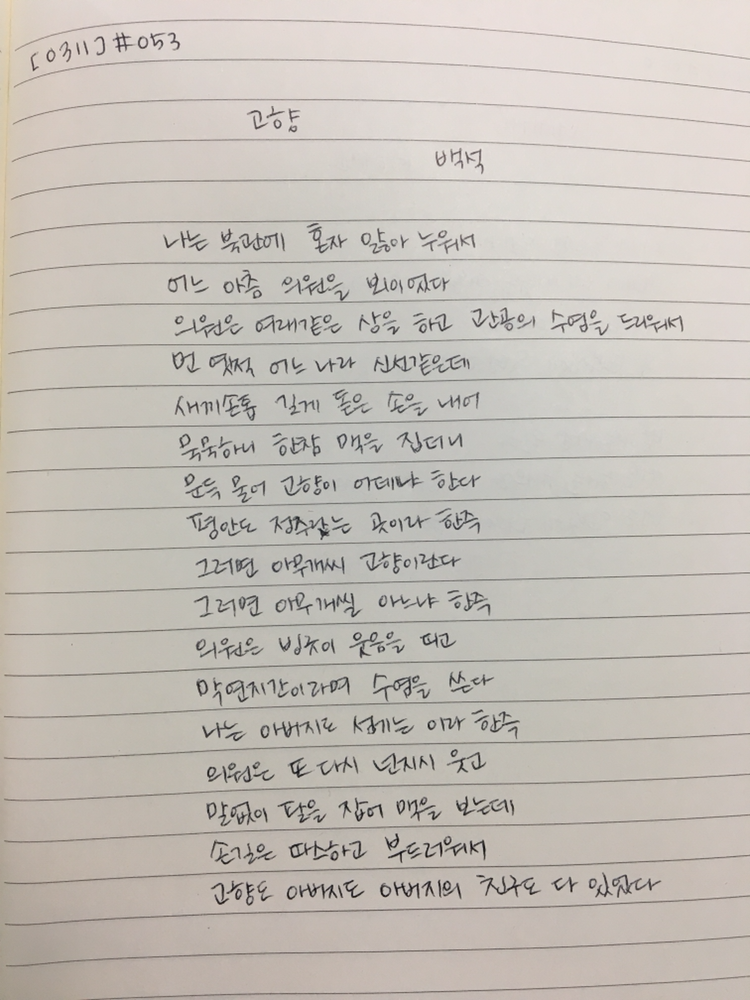 [0311] #053
고향
백석
나는 북관에 혼자 앓아 누워서
어느 아츰 의원을 보이었다
의원은 여래같은 상을 하고 관공의 수염을 드리워서
먼 옛적 어느 나라 신선같은데
새끼손톱 길게 돋은 손을 내어
묵묵하니 한참 맥을 집더니
문득 물어 고향이 어데냐 한다
평안도 정주라는 곳이라 한즉
그러면 아무개씨 고향이란다
그러면 아무개씰 아느냐 한즉
의원은 빙긋이 웃음을 띠고
막연지간이라며 수염을 쓴다
나는 아버지로 섬기는 이라 한즉
의원은 또 다시 넌지시 웃고
말없이 팔을 잡어 맥을 보는데
손길은 따스하고 부드러워서
고향도 아버지도 아버지의 친구도 다 있었다